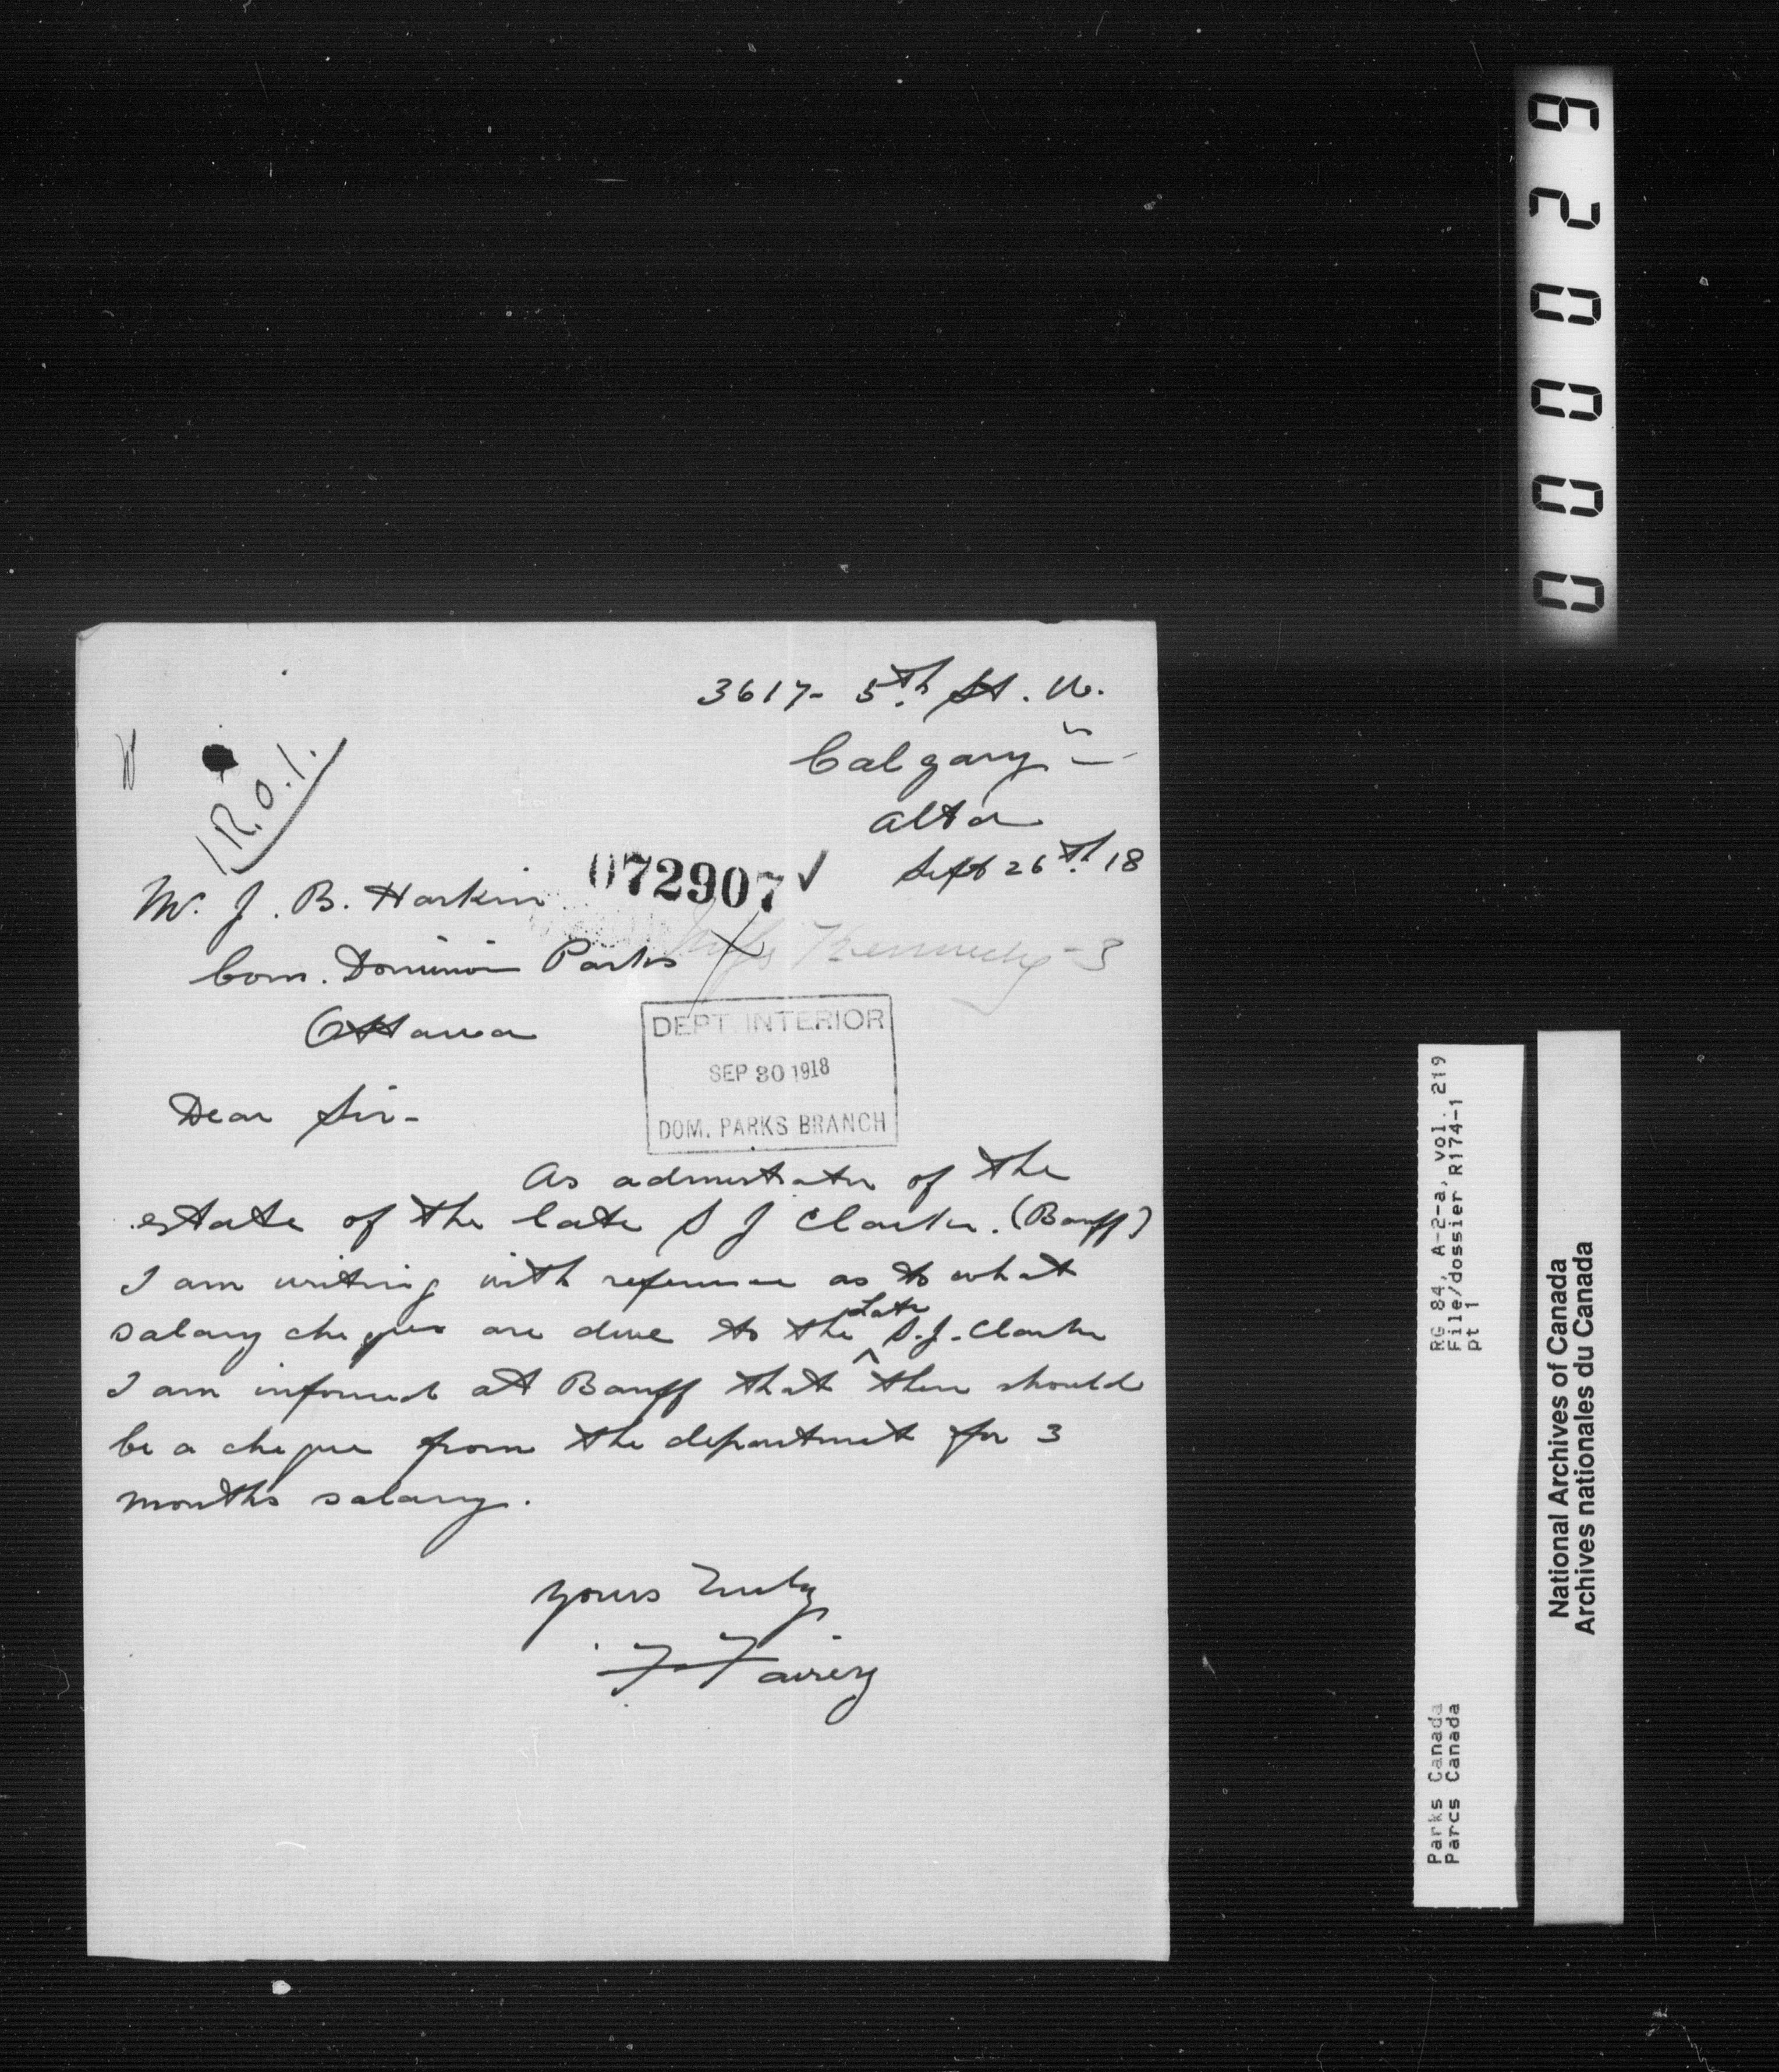 3617 - 5th St. W.
Calgary
Alta
Sept 26th 18
R.O.1.
072907 ✓
Mr. J. B. Harkin
Com. Dominion Parks
Miss Kennedy - 3
Ottawa
DEPT. INTERIOR
SEP 30 1918
DOM. PARKS BRANCH
Dear Sir -
As admistrator of the
estate of the late S J Clarke. (Banff)
I am writing with reference as to what
salary cheques are due to the ^Late S.J. Clarke
I am informed at Banff that there should
be a cheque from the department for 3
months salary.
Yours Truly
F Fairey
000029
RG 84, A-2-a, vol. 219
File/dossier R174-1
pt 1
Parks Canada
Parcs Canada
National Archives of Canada
Archives nationales du Canada